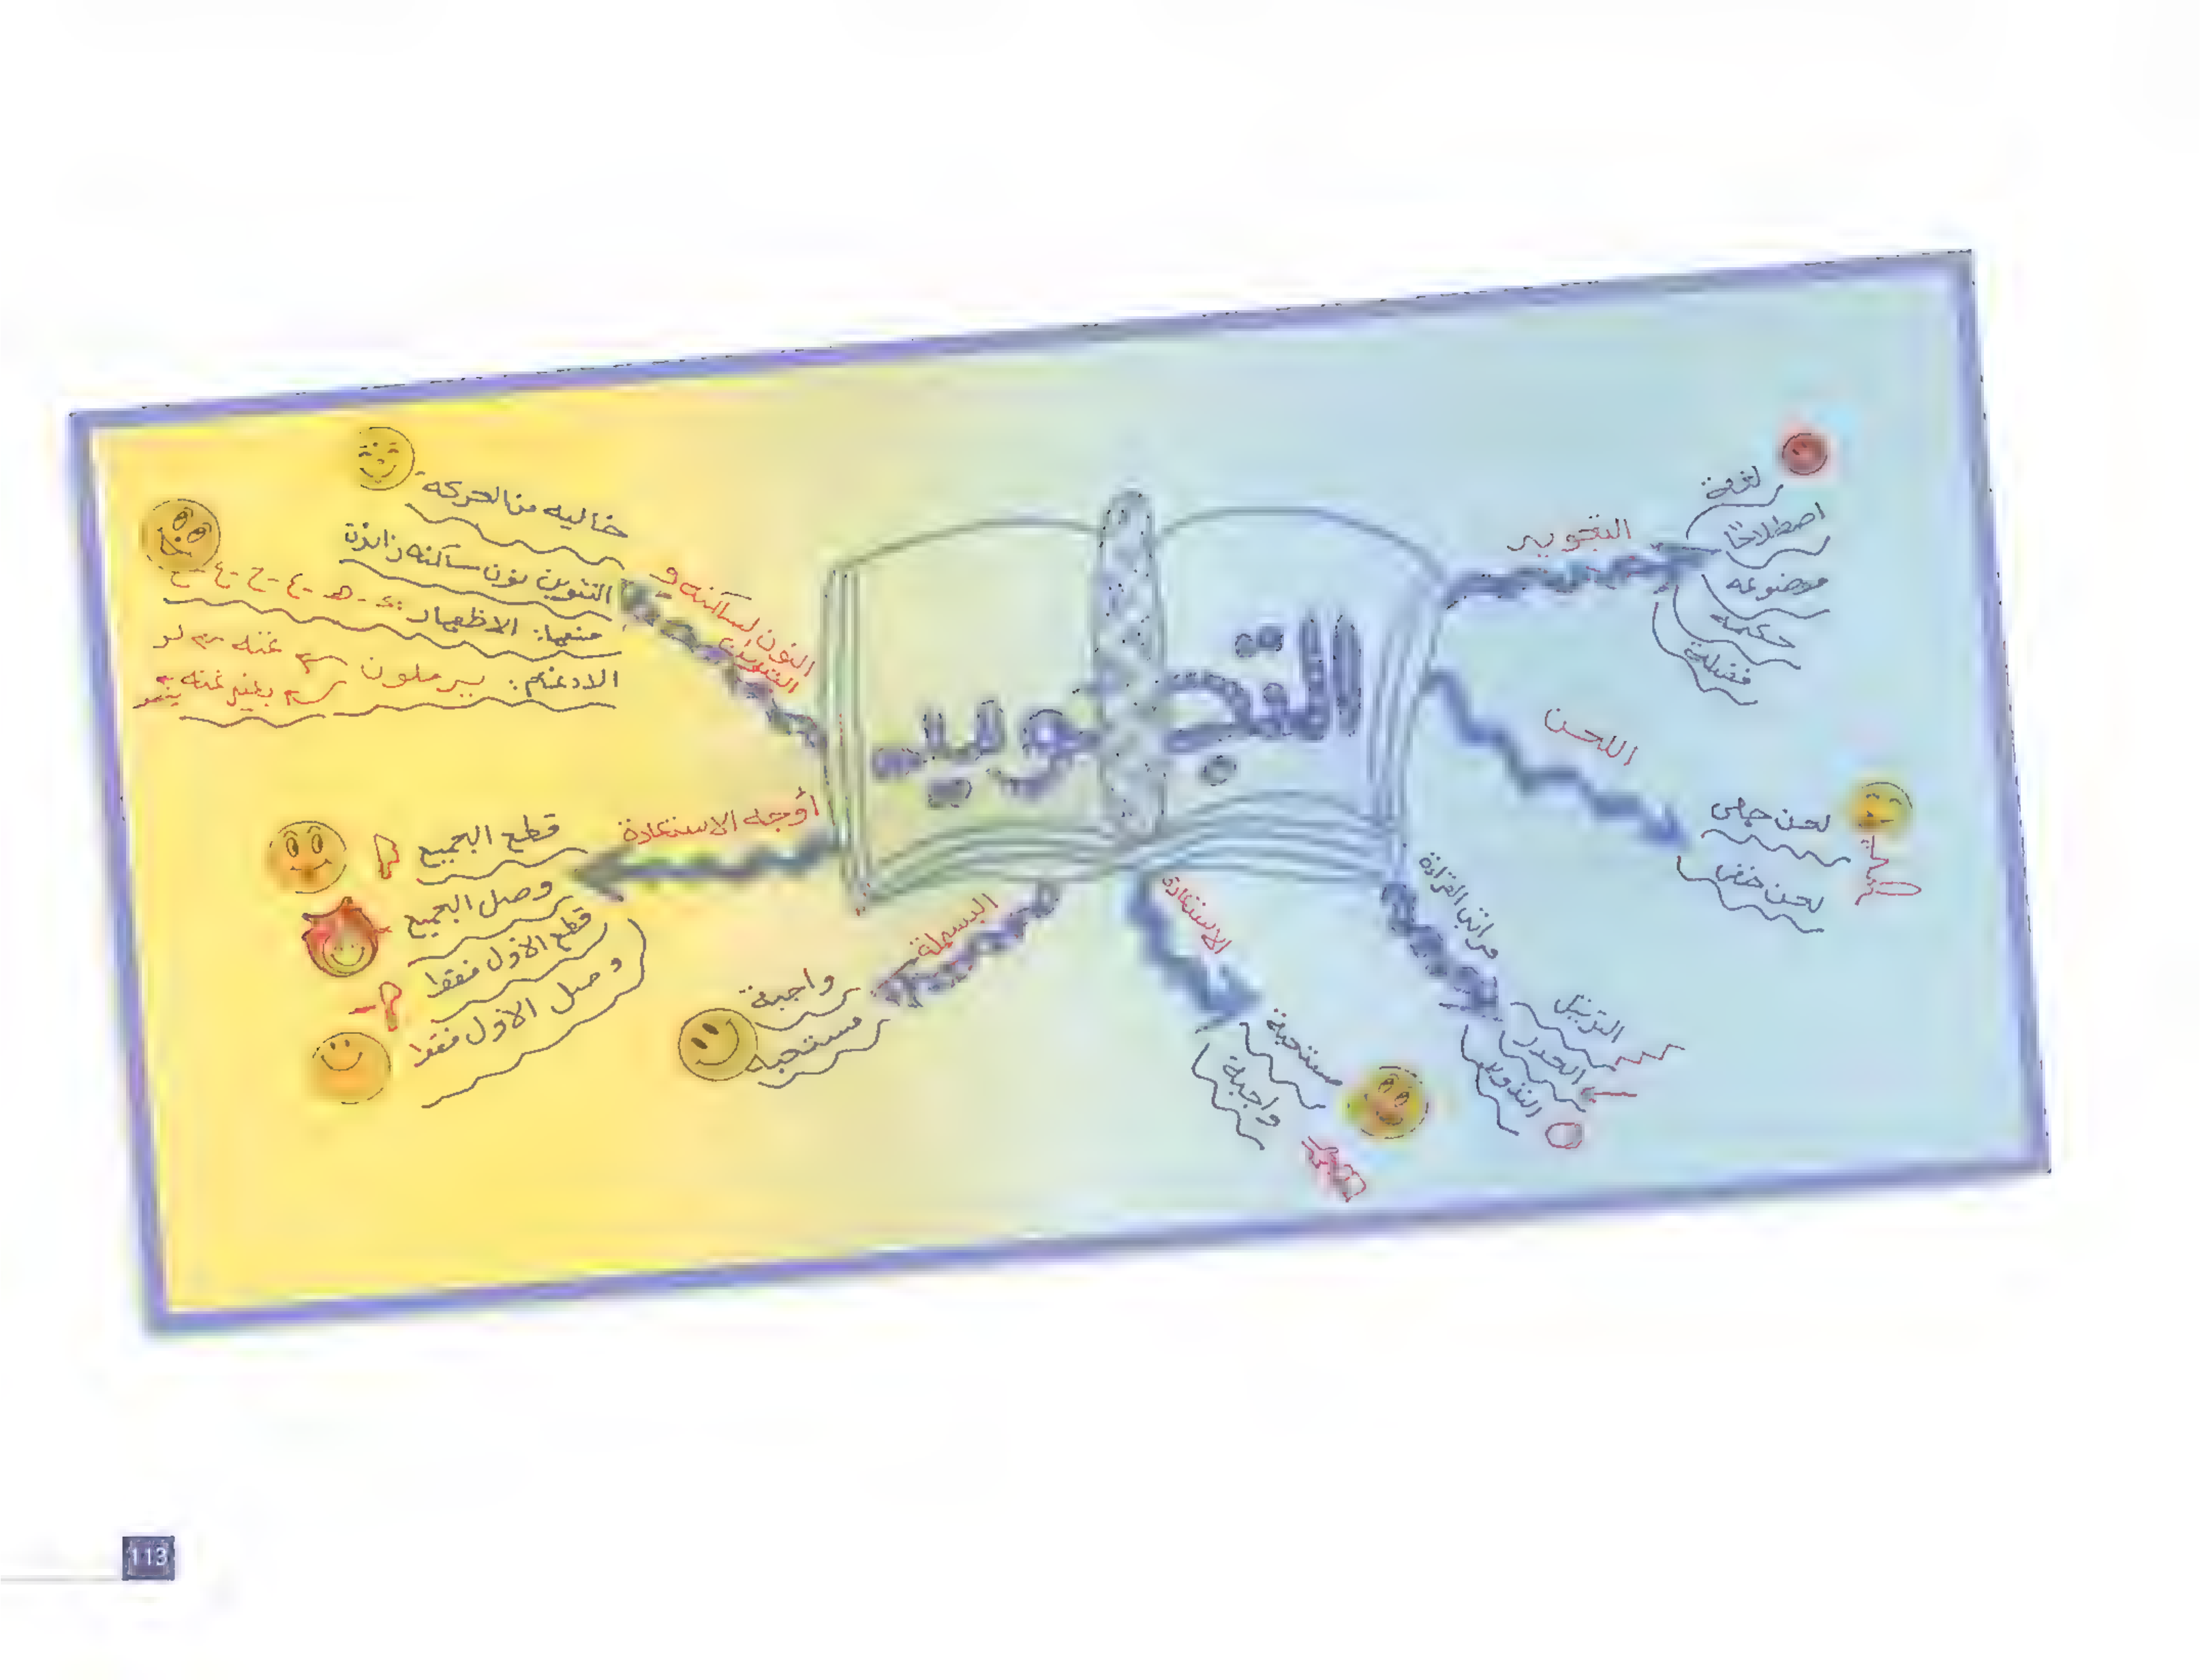 التجويد
التجويد
لغة
اصطلاحًا
موضوعه
حكمه
اللحن
لحن جلي
لحن خفي
مراتب القراءة
الترتيل
الحدر
التدوير
الاستعاذة
مستحبة
واجبة
البسملة
واجبة
مستحبه
أوجه الاستعاذة
قطع الجميع
وصل الجميع
قطع الاول فقط
وصل الاول فقط
النون الساكنه و
التنوين
خاليه من الحركة
التنوين نون ساكنه زائدة
الاظهار: ء - هـ - ع - ح - غ - خ
الادغام: يرملون غنه
بغير غنه
113